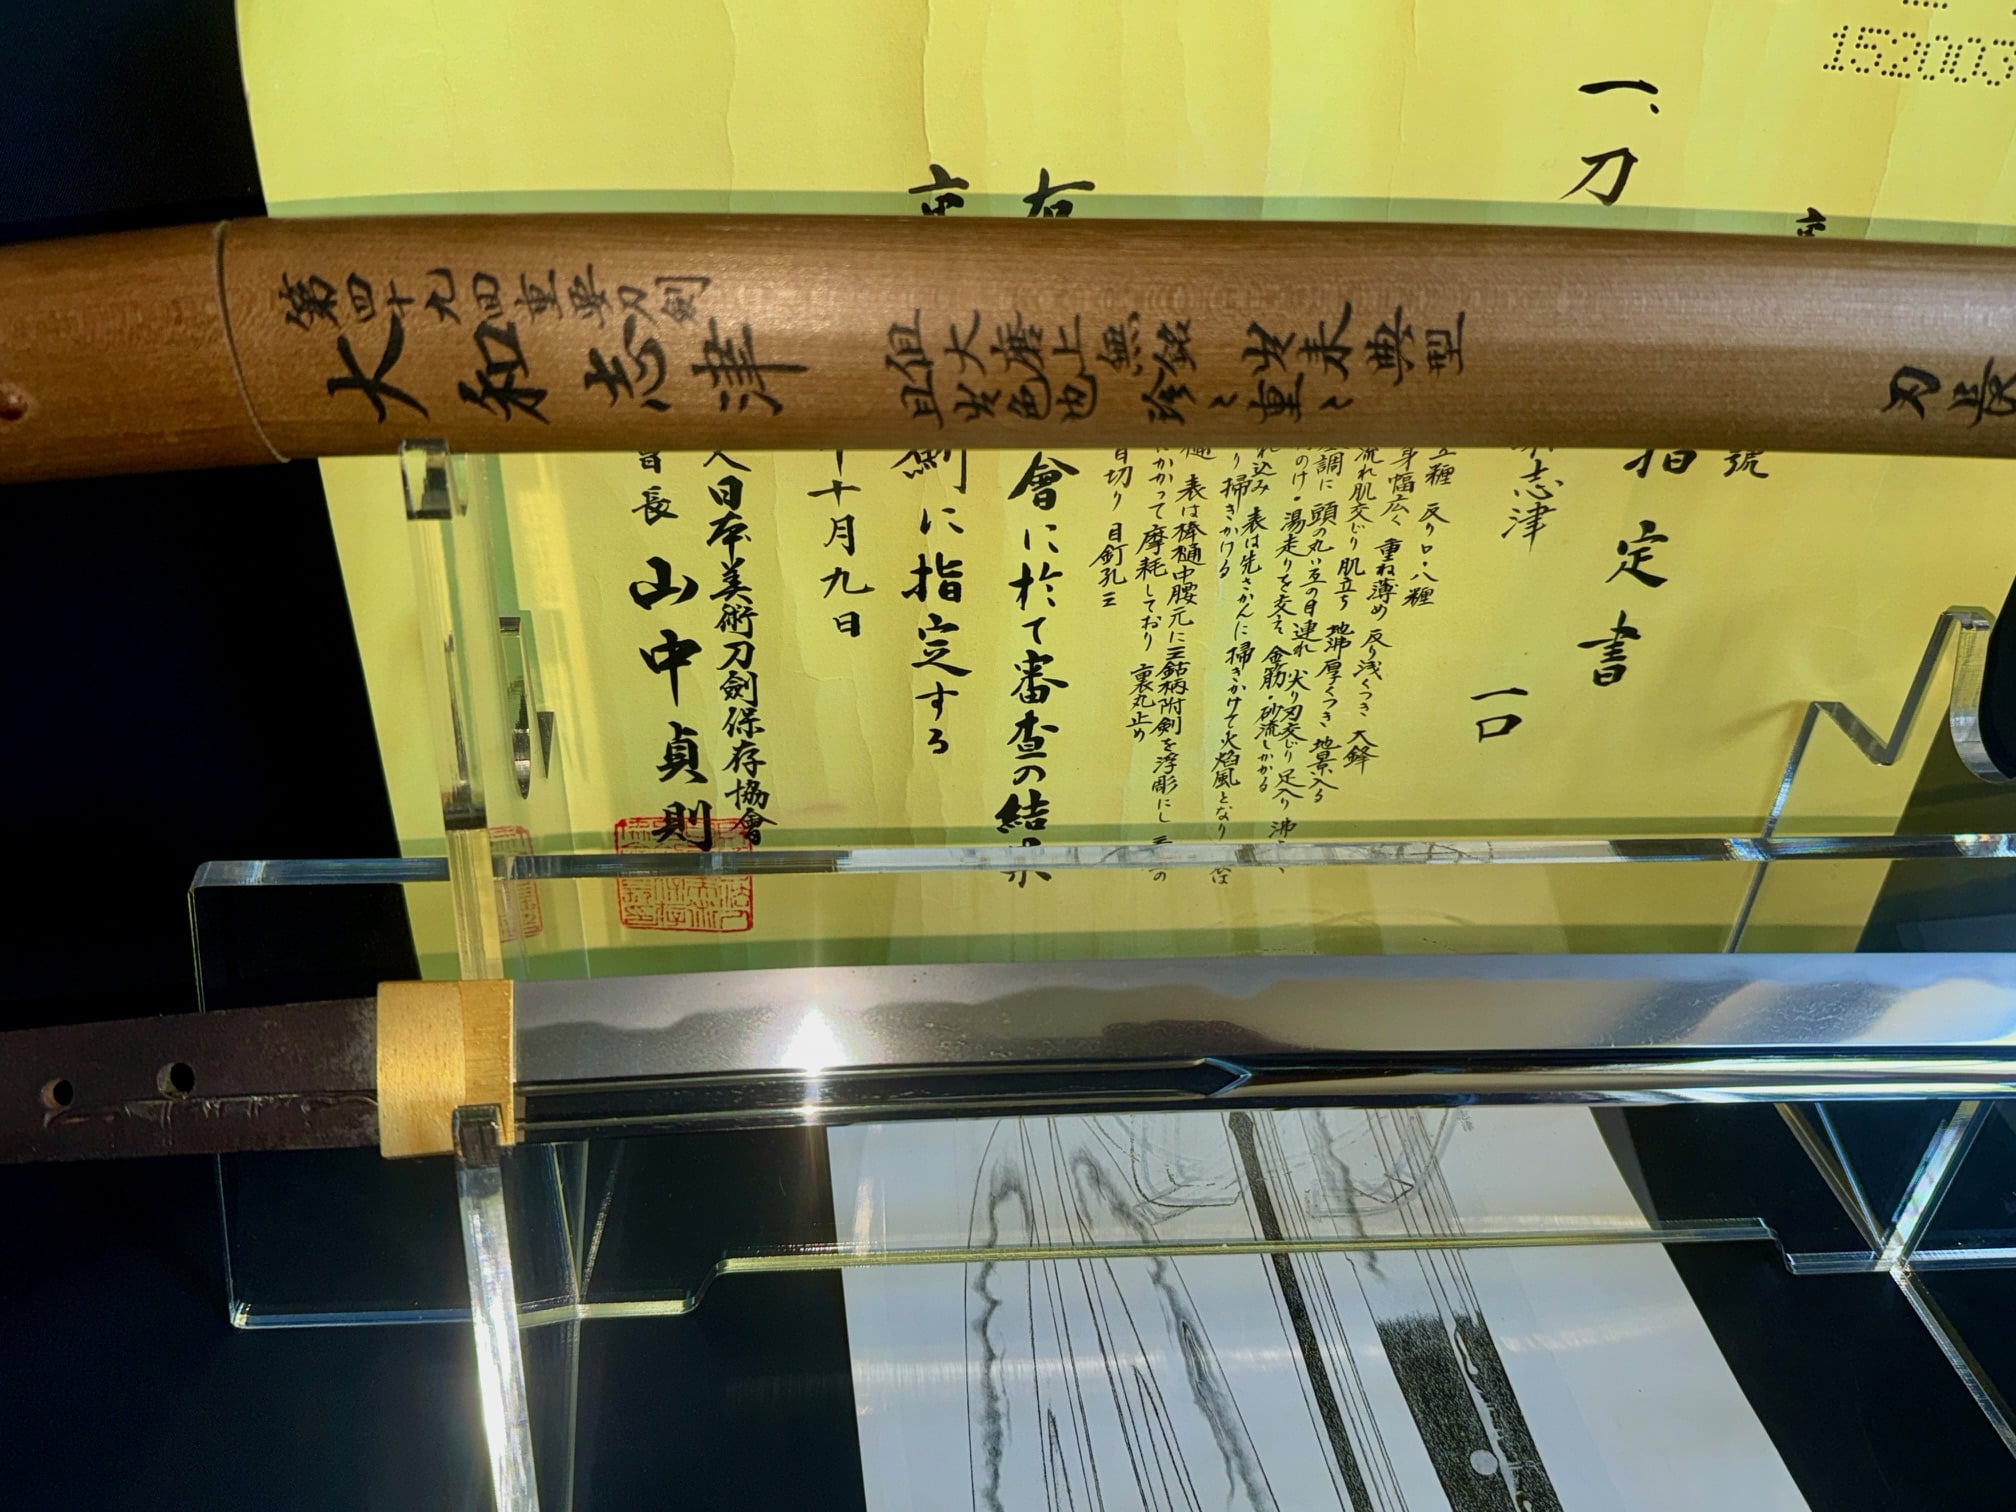 152003
一、刀
指定書
號
志津
一口
五糎 反り〇・八糎
身幅広く 重ね薄め 反り浅くつき 大鋒
流れ肌交じり 肌立ち 地沸厚くつき 地景入る
調に 頭の丸い互の目連れ 尖り刃交じり 足入り 沸
のけ・湯走りを交え 金筋・砂流しかかる
れ込み 表は先さかんに掃きかけて火焔風となり
り掃きかける
樋 表は棒樋中腰元に三鈷柄附剣を浮彫にし
にかかって摩耗しており 裏丸止め
切り 目釘孔三
右
會に於て審査の結果
に指定する
十月九日
日本美術刀劍保存協會
會長 山中貞則
第四十九回重要刀剣
大和志津
但大磨上無銘 出来典型
且出色也 珍々重々
刃長